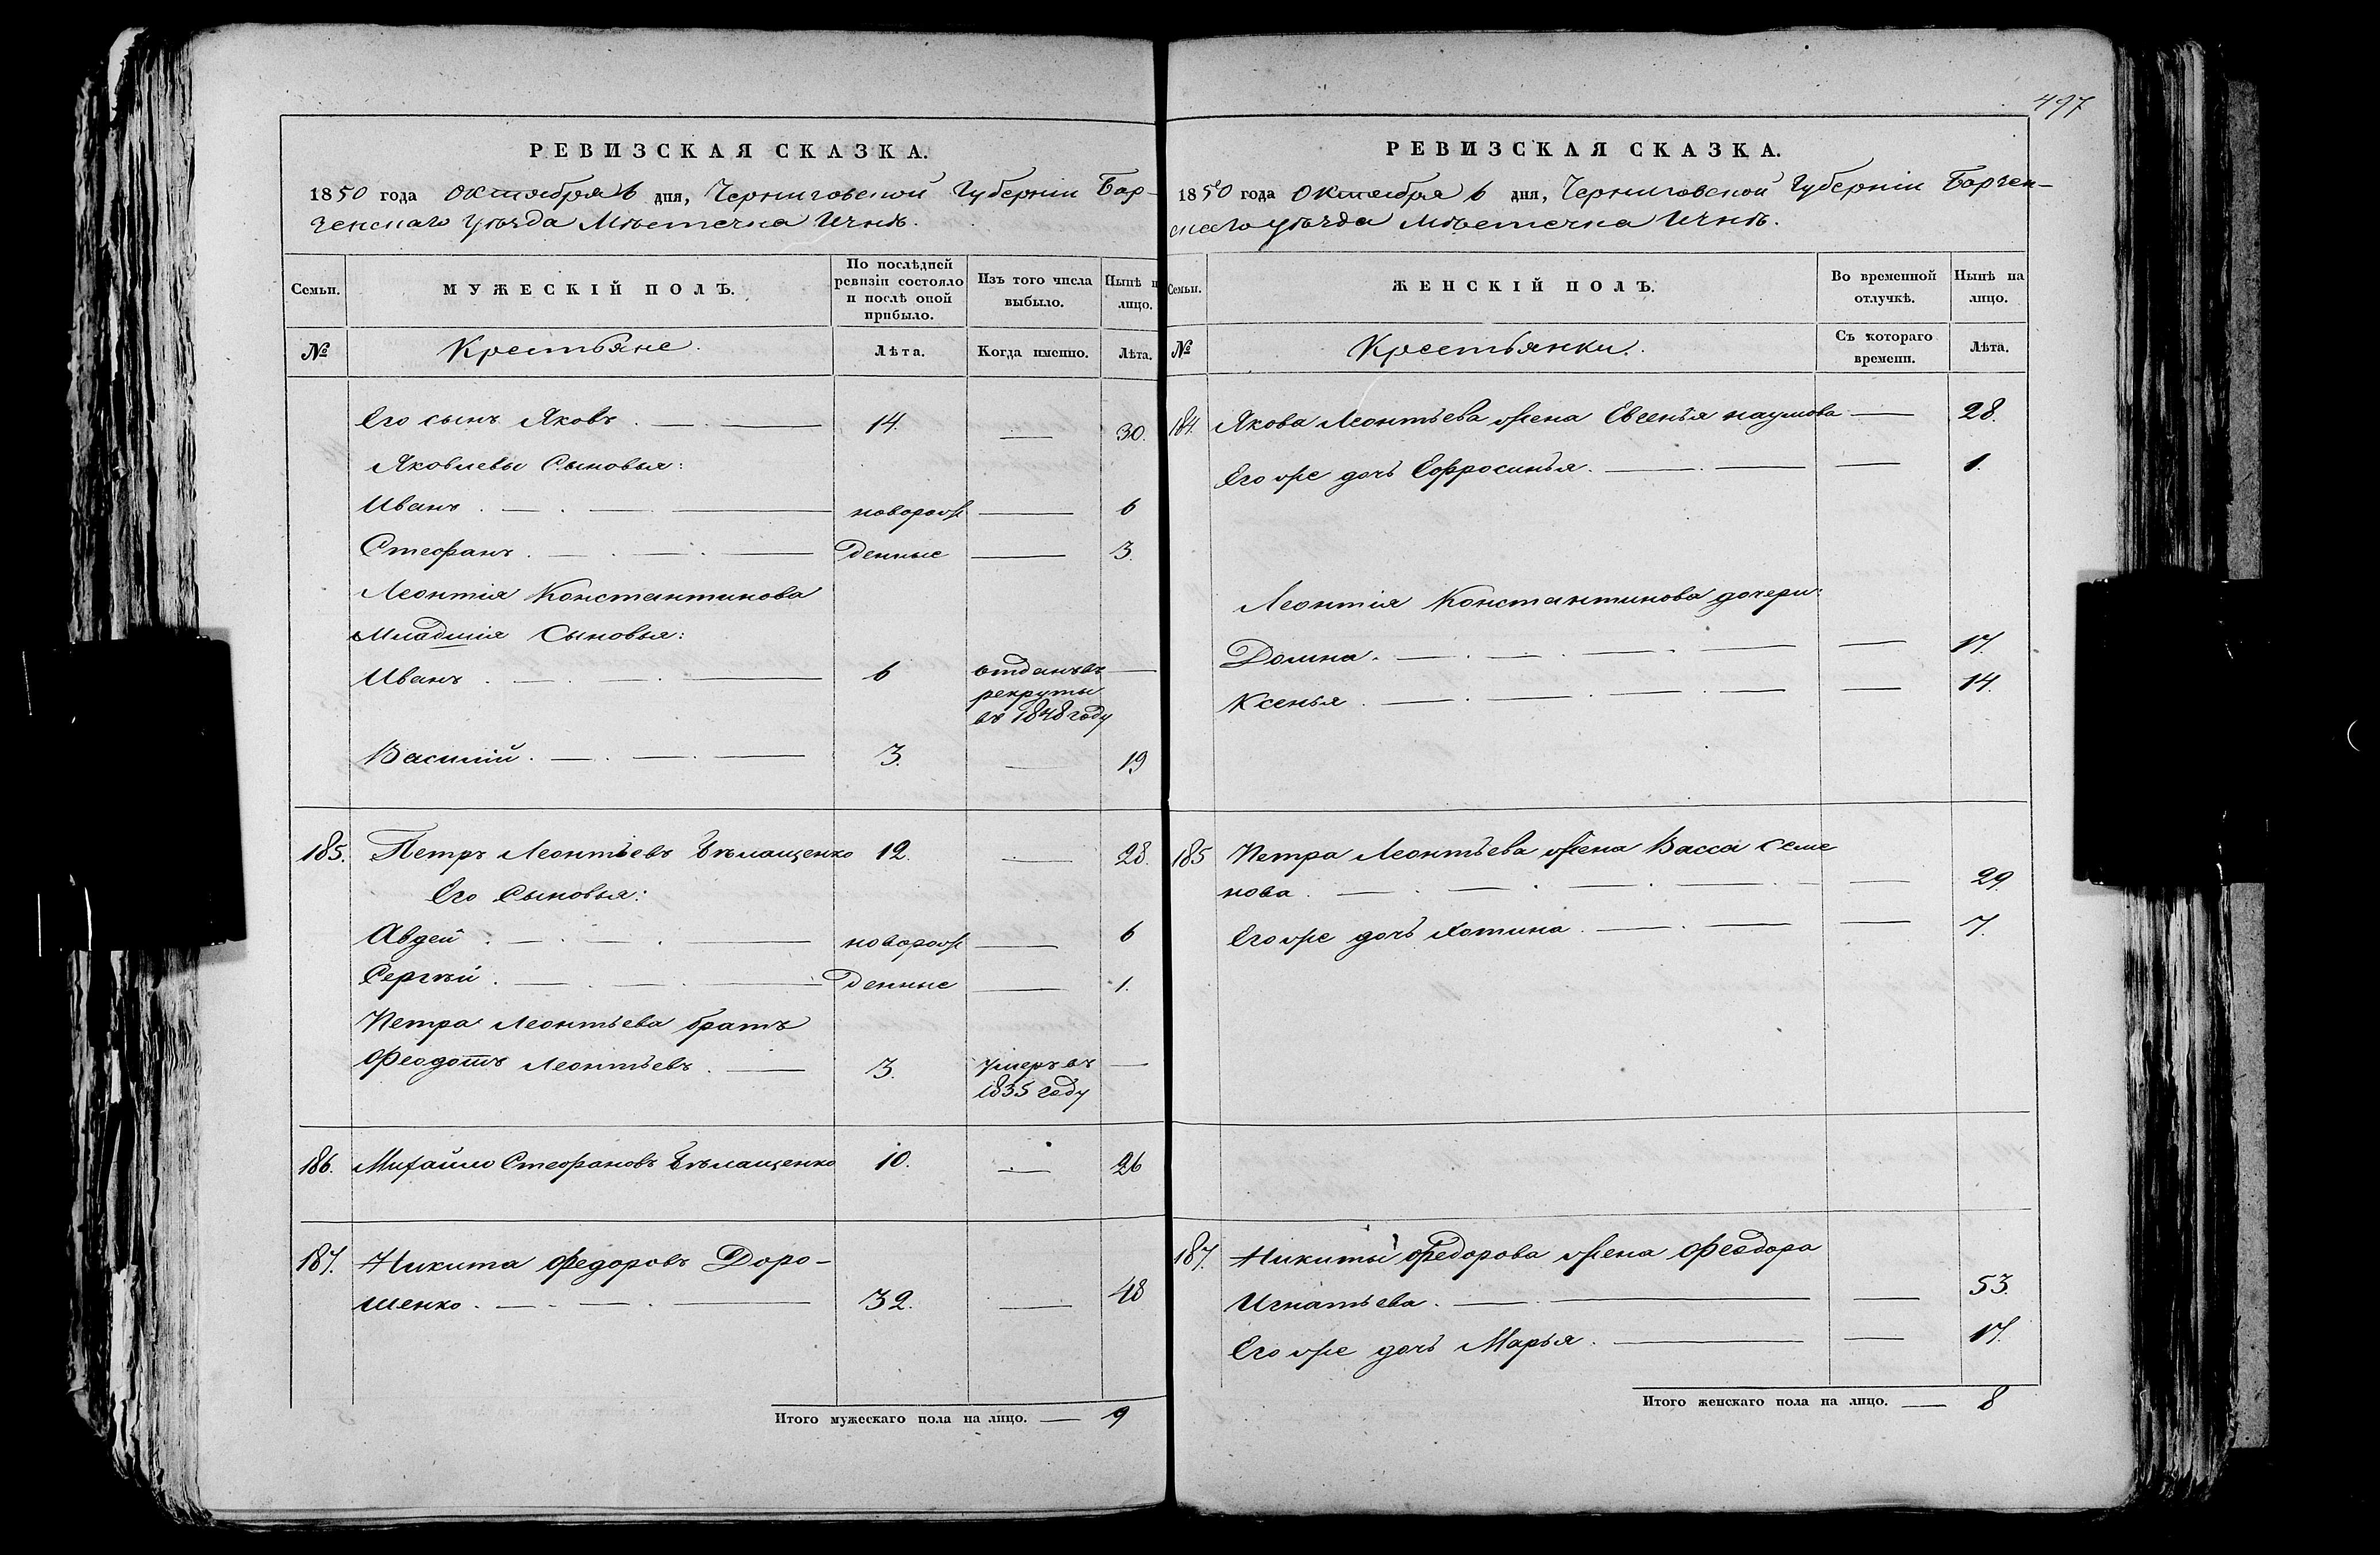 497
РЕВИЗСКАЯ СКАЗКА.
1850 года Октября 6 дня, Черниговской Губерніи Бор-
зенскаго уѣзда Мѣстечка Ичнѣ.
Семьи. МУЖЕСКІЙ ПОЛЪ. По послѣдней ревизіи состояло и послѣ оной прибыло. Изъ того числа выбыло. Нынѣ н лицо.
№ Крестьяне. Лѣта. Когда именно. Лѣта.
Его сынъ Яковъ . — . — 14. — 30.
Яковлевы Сыновья:
Иванъ . — . — новорож — 6
Стефанъ . — . — . — денные — 3.
Леонтія Константинова
Младшія Сыновья:
Иванъ . — . — . — 6 отданъ въ —
рекруты
въ 1848 году
Василій . — . — . — 3. — 19
185. Петръ Леонтьевъ Бѣлащенко 12. — 28.
Его Сыновья:
Авдей . — . — . — новорож — 6
Сергѣй . — . — . — денные — 1.
Петра Леонтьева братъ
Феодотъ Леонтьевъ . — 3. умеръ въ —
1835 году
186. Михайло Стефановъ Бѣлащенко 10. — 26
187. Никита Федоровъ Доро-
шенко . — . — . — 32. — 48
Итого мужескаго пола на лицо. — 9
РЕВИЗСКАЯ СКАЗКА.
1850 года Октября 6 дня, Черниговской Губерніи Борзен-
скаго уѣзда Мѣстечка Ичнѣ.
Семьи. ЖЕНСКІЙ ПОЛЪ. Во временной отлучкѣ. Нынѣ на лицо.
№ Крестьянки. Съ котораго времени. Лѣта.
184. Якова Леонтьева жена Евсенья Наумова — 28.
Его же дочь Ефросинья . — . — — 1.
Леонтія Константинова дочери:
Домна . — . — . — . — — 17.
Ксенья . — . — . — . — — 14.
185 Петра Леонтьева жена Васса Семе
нова . — . — . — . — . — — 29.
Его же дочь Хотина . — . — — 7.
187. Никиты Федорова жена Феодора
Игнатьева . — . — — 53.
Его же дочь Марья . — — 17.
Итого женскаго пола на лицо. — 8